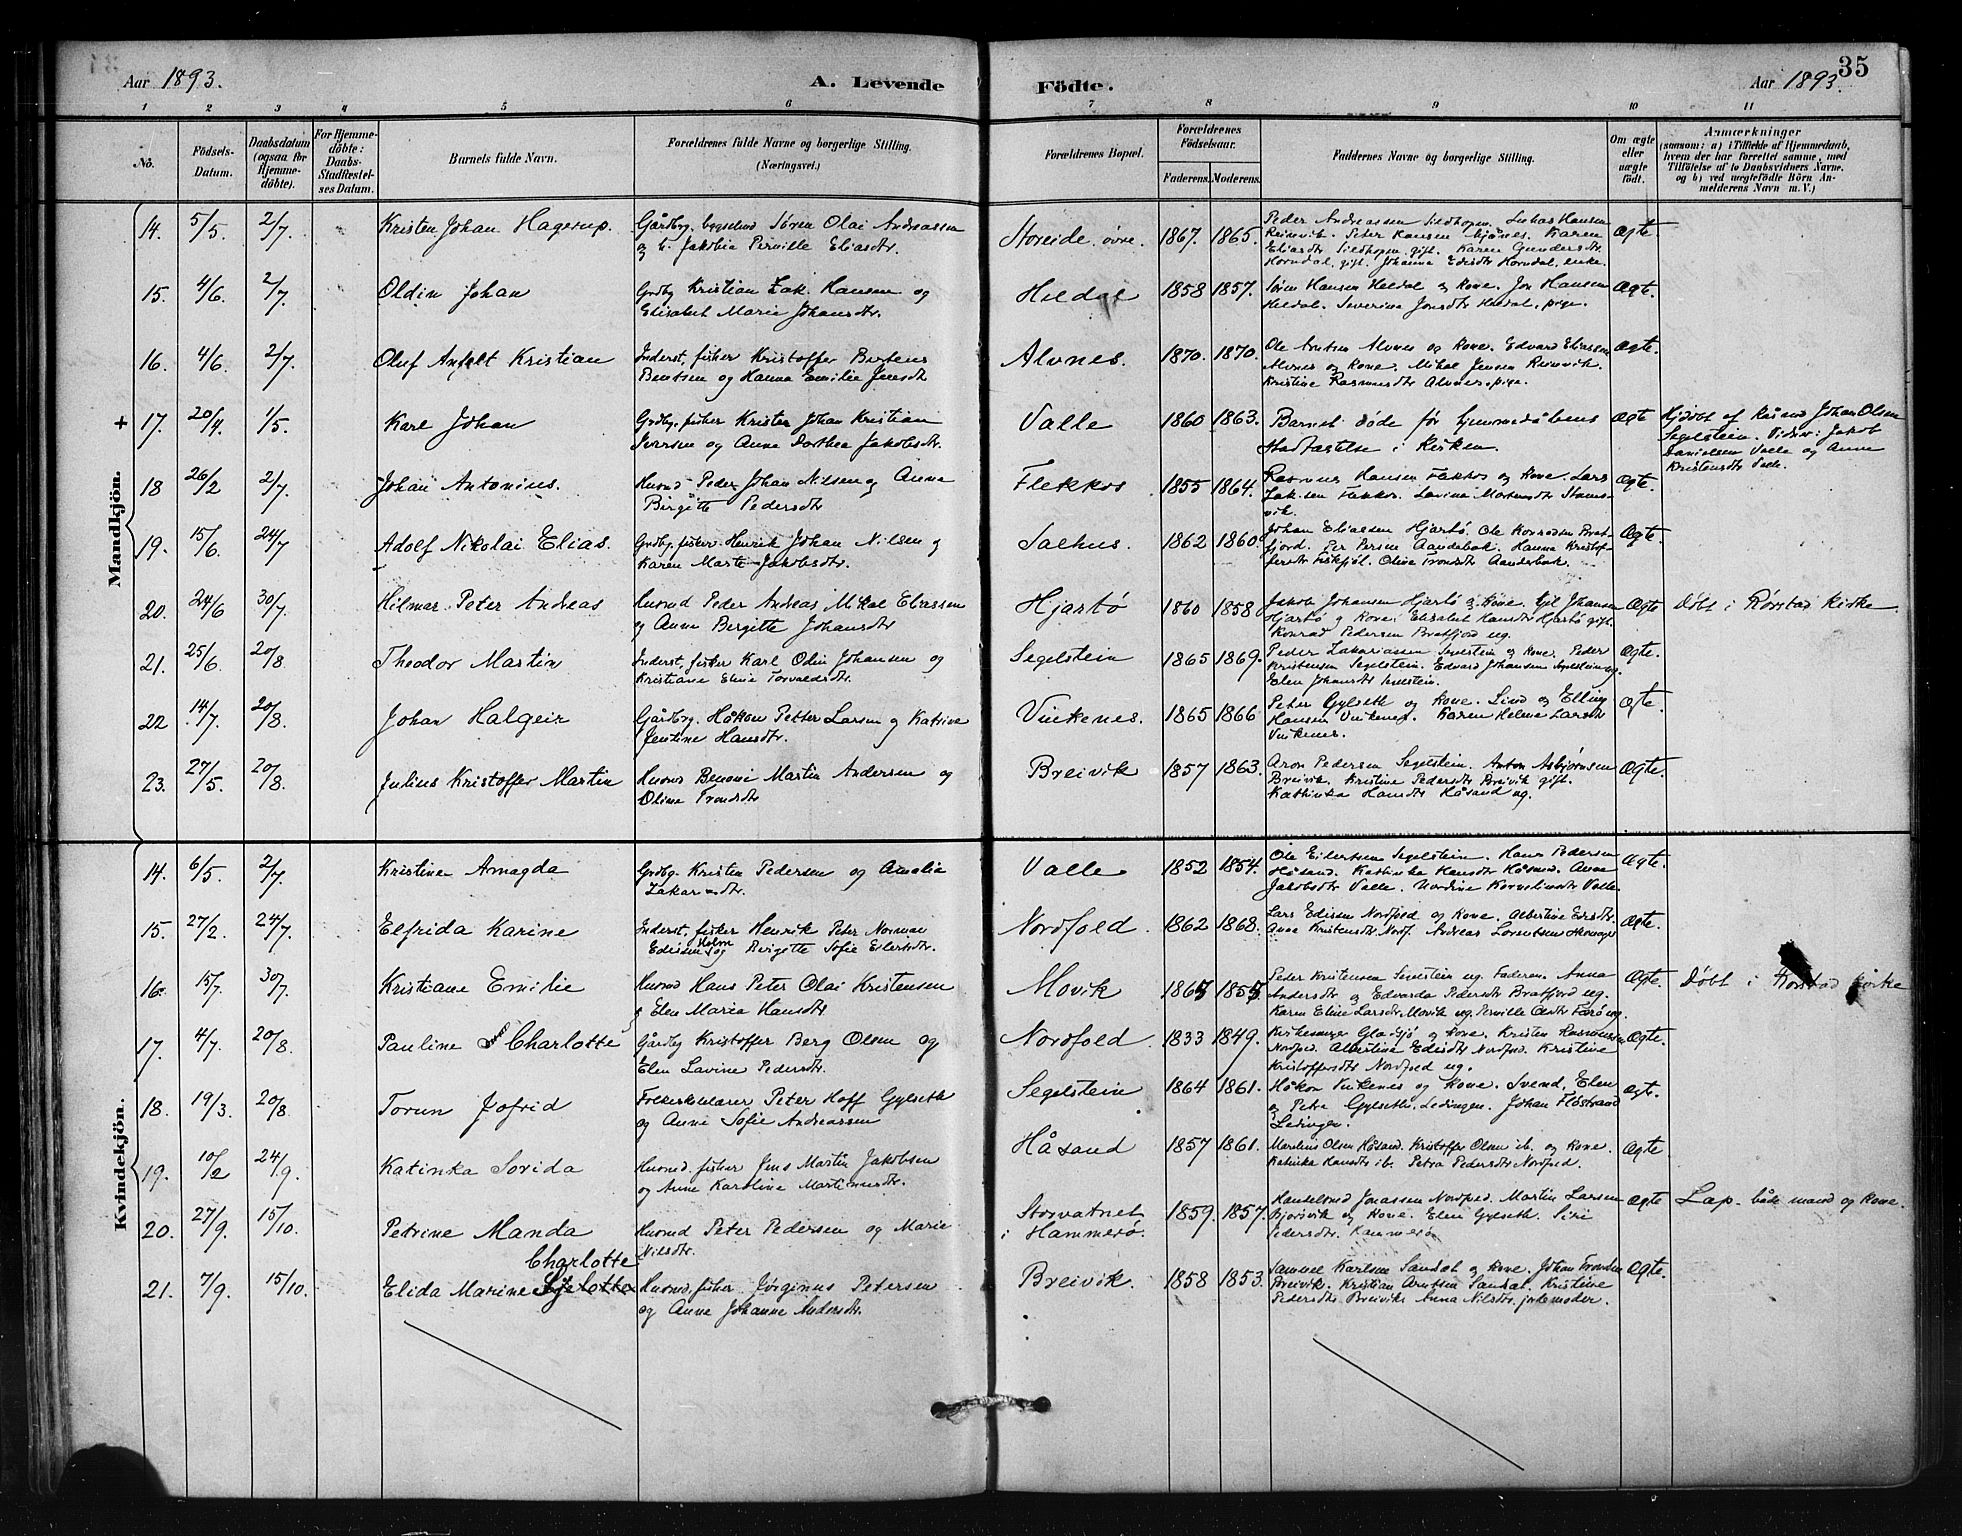 Aar 1893. A. Levende Födte. Aar 1893. 35
1 2 3 4 5 6 7 8 9 10 11
No.
Födsels-Datum.
Daabsdatum (ogsaa for Hjemme-döbte).
For Hjemme-döbte: Daabs-Stadfæstel-ses Datum.
Barnets fulde Navn.
Forældrenes fulde Navne og borgerlige Stilling. (Næringsvei.)
Forældrenes Bopæl.
Forældrenes Födselsaar.
Faderens. Moderens.
Faddernes Navne og borgerlige Stilling.
Om ægte eller uægte födt.
Anmærkninger
(saasom: a) i Tilfælde af Hjemmedaab,
hvem der har forrettet samme, med
Tilföielse af to Daabsvidners Navne,
og b) ved uægtefödte Börn An-
melderens Navn m. V.)
Mandkjön.
14. 5/5. 2/7. Kristen Johan Hagerup. Gårdbg. bygselmd Søren Olai Andreassen
og h. Jakobia Pernille Eliasdtr Storeide, øvre. 1867. 1865. Peder Andreassen Sildhopen. Lukas Hansen
Reinvik. Peter Hansen Karen
Eliasdtr Sildhopen gift. Karen Gundersdtr
Horndal, gift. Johanna Edisdtr Horndal, enke. Ægte.
15. 4/6. 2/7. Oldin Johan Grdbg Kristian Zak. Hansen og
Elisabet Marie Johansdtr. Heldal 1858 1857. Søren Hansen Heldal og Kone. Jon Hansen
Heldal. Severine Jonsdtr Heldal, pige. Ægte.
16. 4/6. 2/7. Oluf Kristian Inderst, fisker Kristoffer
Bentsen og Hanna Emilie Jensdtr Alvnes. 1870. 1870. Ole Arntsen Alvnes og Kone. Edvard Eliassen
Alvnes og Kone. Mikal Jensen Reinvik.
Kristine Rasmusdtr Alvnes, pige. Ægte.
+ 17. 20/4. 1/5. Karl Johan Grdbg. fisker Krister Johan Kristian
Iversen og Anne Dorthea Jakobsdtr. Valle 1860 1863. Barnet døde før hjemmedåbens
Stadfæstelse i Kirken Ægte Hjdøbt af Råsand Johan Olsen
Segelstein. Vidner: Jakob
Danielsen Valle og Anne
Kristensdtr Valle.
18 26/2 2/7. Johan Antonius. Husmd Peder Johan Nilsen og Anna
Birgitte Pedersdtr Flekkos 1855 1864. Rasmus Hansen Flekkos og Kone. Lars
Zak.sen Flekkos. Lavina
vik. Ægte.
19. 15/6. 24/7 Adolf Nikolai Elias. Grdbg. fisker Henrik Johan Nilsen og
Karen Marte Jakobsdtr. Salhus. 1862 1860. Johan Eliassen Hjartø. Ole Konradsen Brat-
fjord. Per Persen Hanna Kristof-
fersdtr Olina Trondsdtr Ægte.
20. 24/6 30/7. Hilmar Peter Andreas Husmd Peder Andreas Mikal Eliassen
og Anne Bergitte Johansdtr Hjartø 1860 1858 Jakob Johansen Hjartø og Kone. Johansen
Hjartø og Kone. Elisabet Hansdtr Hjartø gift.
Konrad Pedersen Bratfjord ug. Ægte Døbt i Rørstad kirke
21. 25/6. 20/8 Theodor Martin Inderst, fisker Karl Odin Johansen og
Kristiane Eline Torvaldsdtr. Segelstein 1865 1869. Peder Zakariassen Segelstein og Kone. Peder
Kristensen Segelstein. Edvard Johansen Segelstein ug.
Elen Johansdtr Segelstein. Ægte.
22 14/7. 20/8. Johan Halgeir Gårdbg. Håkon Petter Larsen og Katrine
Jentine Hansdtr. Vinkenes. 1865 1866 Peter Gylseth og Kone. Lind og Elling
Hansen Vinkenes. Karen Helene Larsdtr
Vinkenes. Ægte.
23. 27/5. 20/8. Julius Kristoffer Martin Husmd Benoni Martin Andersen og
Olina Trondsdtr Breivik 1857 1863. Aron Pedersen Segelstein. Anton Asbjørnsen
Breivik. Kristine Pedersdtr Breivik gift.
Kathinka Hansdtr Håsand ug. Ægte.
Kvindekjön.
14. 6/5. 2/7. Kristine Amagda Grdbg. Kristen Pedersen og Amalia
Zakar dtr. Valle 1852 1854. Ole Eilertsen Segelstein. Hans Pedersen
Håsand. Kathinka Hansdtr Håsand. Anne
Jakobsdtr Valle. Nordine Korneliusdtr Valle Ægte.
15. 27/2. 24/7. Elfrida Karine Inderst, fisker Henrik Peter Norman
Edissen Holm og Birgitte Sofie Eilertsdtr. Nordfold 1862 1868. Lars Edissen Nordfold og Kone. Albertine Edisdtr.
Anna Kristensdtr Nordf. Andreas Lorentsen Ægte.
16. 15/7. 30/7. Kristiane Emilie Husmd Hans Peter Olai Kristensen
og Elen Maria Hansdtr Movik 1865 1855. Peder Kristensen Segelstein ug. Faderen. Anna
Andersdtr og Edvarda Pedersdtr Bratfjord ug.
Karen Eline Larsdtr Movik ug. Pernille Ægte. Døbt i Rørstad kirke
17. 4/7. 20/8. Pauline Charlotte Gårdbg Kristoffer Berg Olsen og
Elen Lavine Pedersdtr. Nordfold. 1833 1849. Kirkesanger Gladsjø og Kone. Kristen Rasmussen
Nordfold. Albertine Edisdtr Nordfold. Kristine
Kristoffersdtr Nordfold ug. Ægte.
18. 19/3. 20/8. Torun Jofrid Folkeskolelærer Peter Hoff Gylseth
og Anne Sofie Andreassen Segelstein 1864 1861. Håkon Vinkenes og Kone. Svend, Elen
og Petra Gylseth, Lødingen. Johan Flostrand
Lødingen. Ægte.
19. 10/2 24/9. Katinka Sorida Husmd. fisker Jens Martin Jakobsen
og Anne Karoline Martinusdtr. Håsand 1857 1861. Martinus Olsen Håsand. Kristoffer Olsen ib. og Kone.
Katinka Hansdtr ib. Petra Pedersdtr Nordfold. Ægte
20. 27/9. 15/10. Petrine Manda Husmd Peter Pedersen og Marie
Nilsdtr. Storvatnet
i Hammerø. 1859. 1857. Handelsmd Jonassen Nordfold. Martin Larsen
og Kone. Elen Gylseth. Siri
Pedersdtr. Hammerø Ægte Lap. både mand og Kone.
21. 7/9. 15/10. Elida Marine Charlotte Husmd, fisker Jørginus Petersen
og Anne Johanne Andersdtr. Breivik. 1858 1853. Samuel Karlsen Sandal og Kone. Johan Trondsen
Breivik. Kristian Arntsen Sandal. Kristine
Pedersdtr Breivik. Anna Nilsdtr. jordemoder. Ægte.